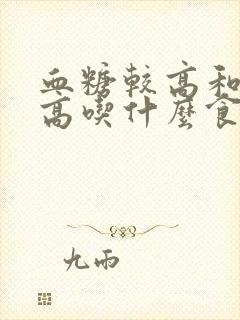 血糖较高和
高喫什麼食
九雨